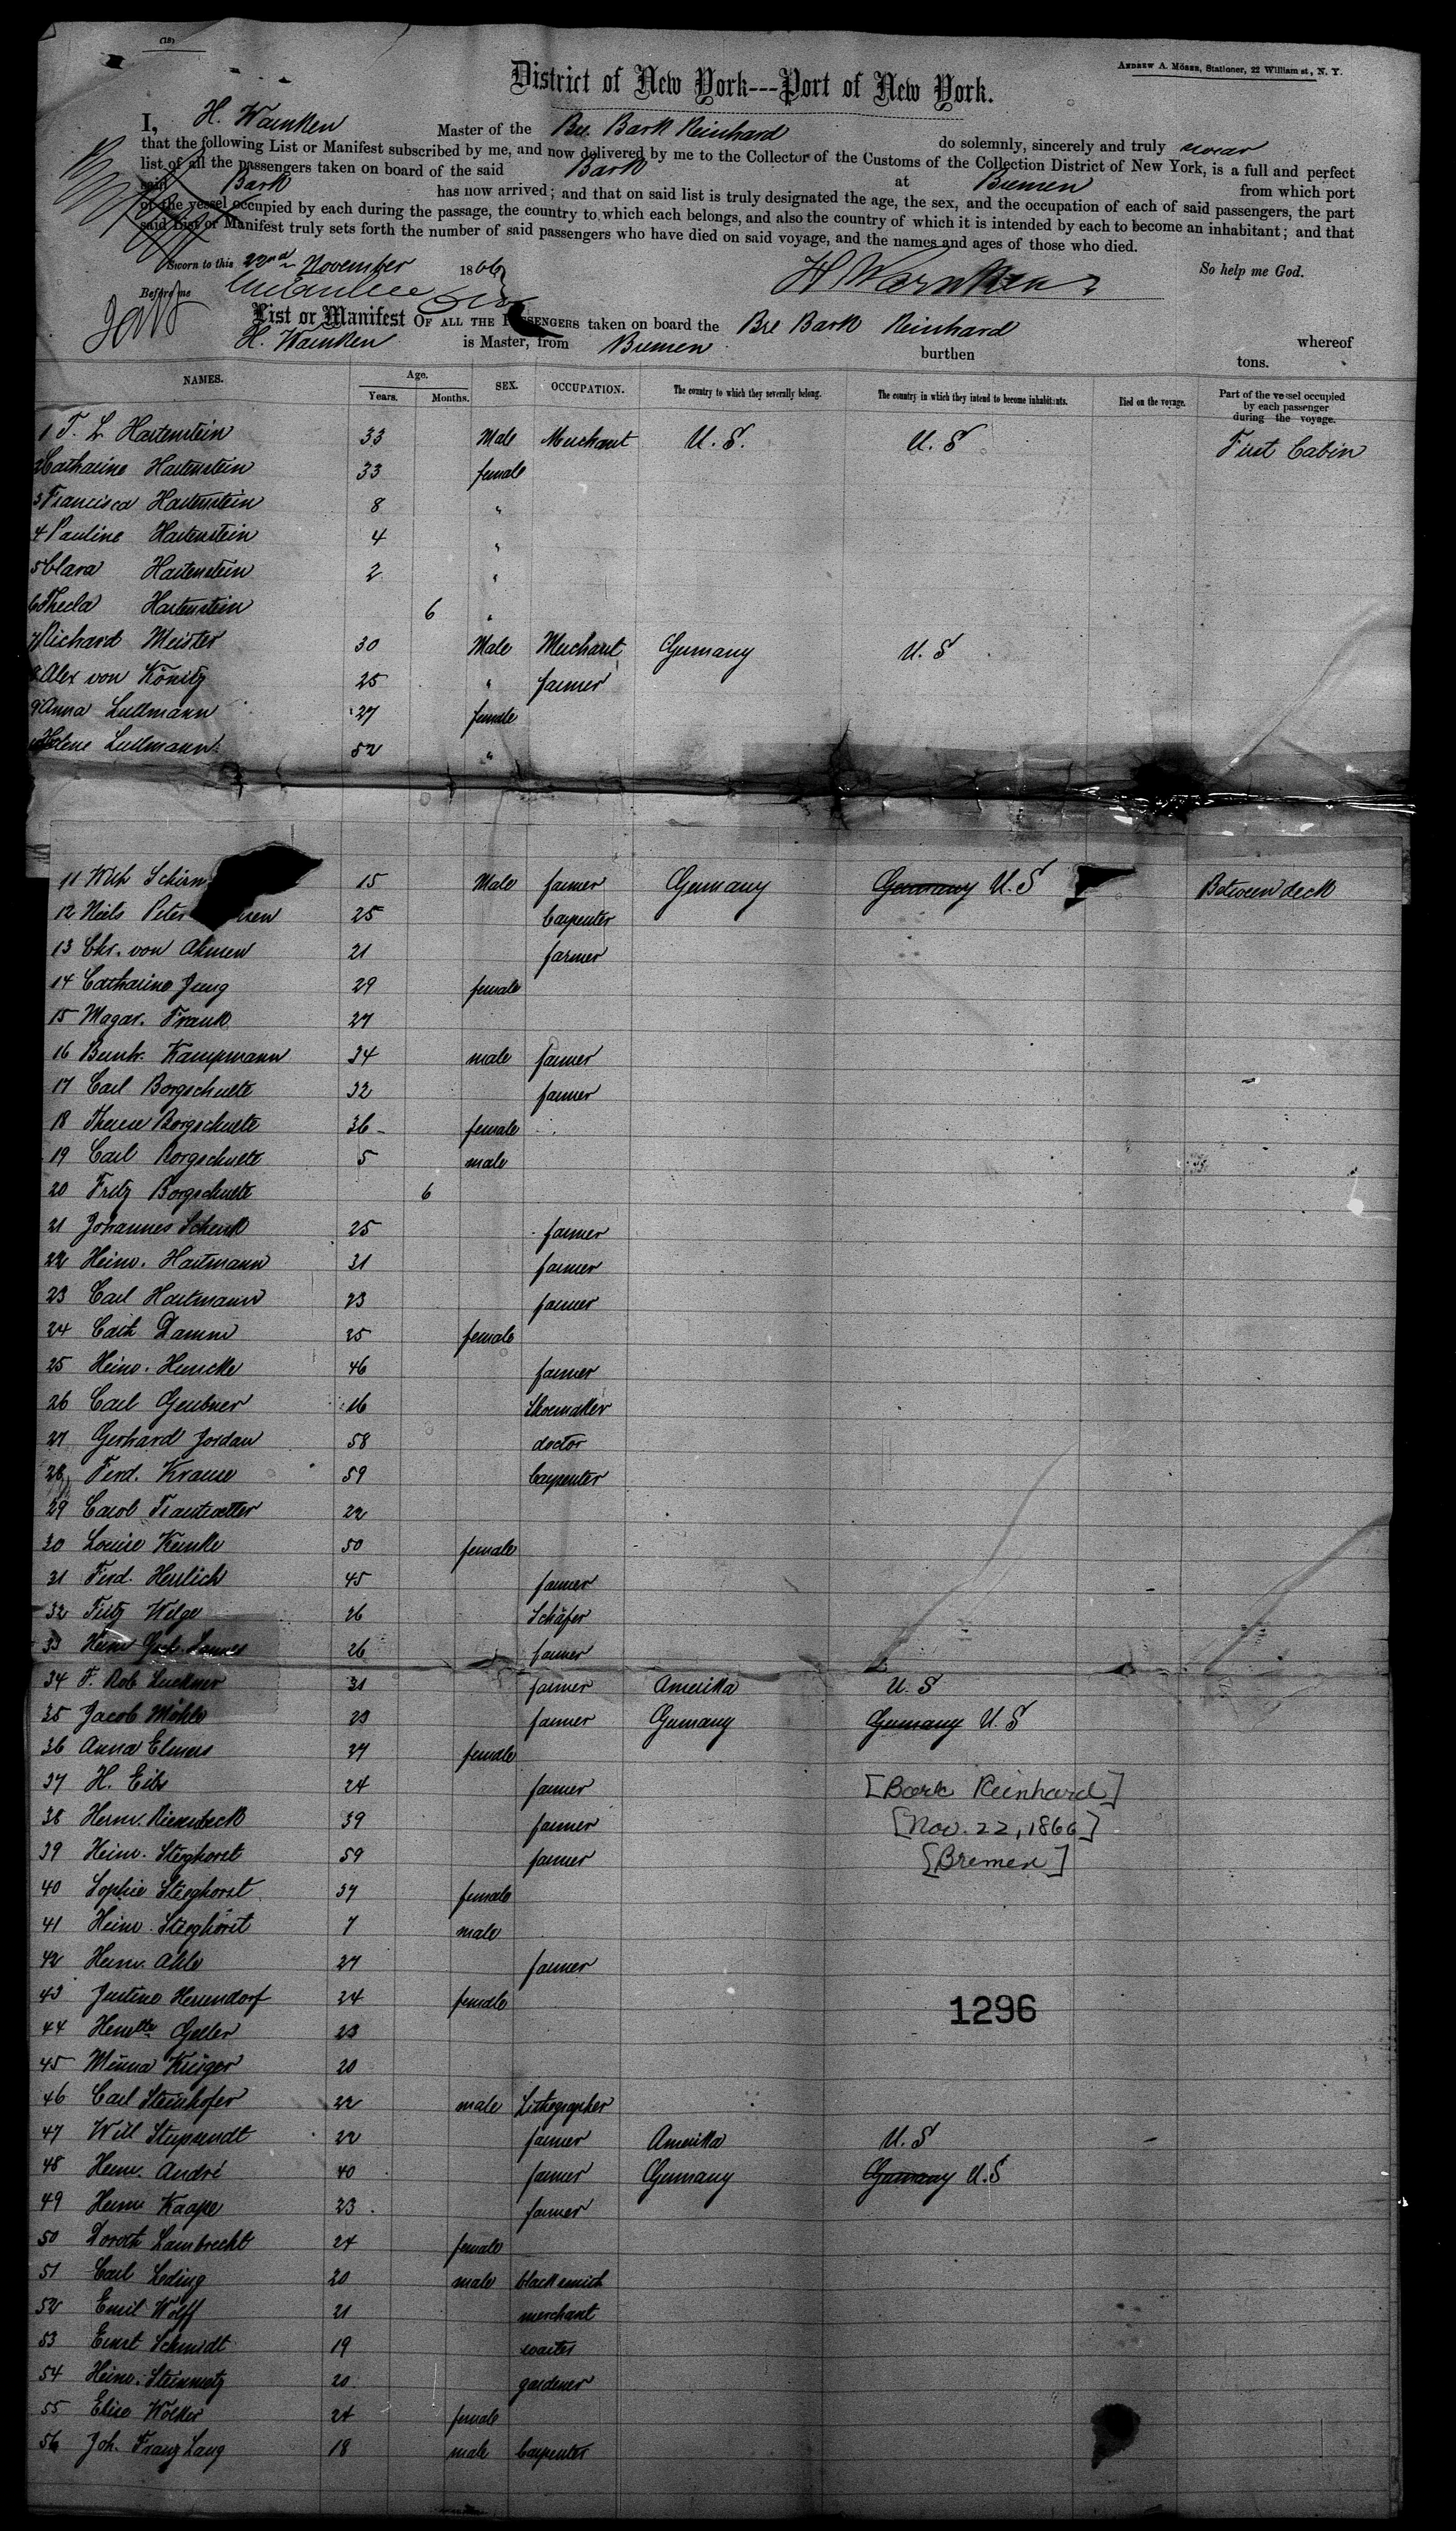 (18)
ANDREW A. MÖSER, Stationer, 22 William st, N. Y.
District of New York---Port of New York.
I, H. Warnken Master of the Bre. Bark Reinhard do solemnly, sincerely and truly swear
that the following List or Manifest subscribed by me, and now delivered by me to the Collector of the Customs of the Collection District of New York, is a full and perfect
list of all the passengers taken on board of the said Bark at Bremen from which port
said Bark has now arrived; and that on said list is truly designated the age, the sex, and the occupation of each of said passengers, the part
of the vessel occupied by each during the passage, the country to which each belongs, and also the country of which it is intended by each to become an inhabitant; and that
said List or Manifest truly sets forth the number of said passengers who have died on said voyage, and the names and ages of those who died.
Sworn to this 22nd November 1866 So help me God.
Before me H Warnken
List or Manifest OF ALL THE PASSENGERS taken on board the Bre Bark Reinhard whereof
H. Warnken is Master, from Bremen burthen tons.
NAMES. Age. Years. Months. SEX. OCCUPATION. The country to which they severally belong. The country in which they intend to become inhabitants. Died on the voyage. Part of the vessel occupied by each passenger during the voyage.
1 F. L. Hartenstein 33 Male Merchant U. S. U. S First Cabin
2 Catharine Hartenstein 33 female
3 Francisca Hartenstein 8 "
4 Pauline Hartenstein 4 "
5 Clara Hartenstein 2 "
6 Thecla Hartenstein 6 "
7 Richard Meister 30 Male Merchant Germany U. S
8 Alex von Könitz 25 " farmer
9 Anna Lullmann 27 female
10 Helene Lullmann 52 "
11 Wilh Schirm 15 Male farmer Germany Germany U. S Between deck
12 Niels Peter 25 Carpenter
13 Chr. von Ahnen 21 farmer
14 Catharine Jung 29 female
15 Magar. Frank 27
16 Bernh. Kampmann 34 male farmer
17 Carl Borgschulte 32 farmer
18 Therese Borgschulte 36 female
19 Carl Borgschulte 5 male
20 Fritz Borgschulte 6
21 Johannes Schenk 25 farmer
22 Heinr. Hartmann 31 farmer
23 Carl Hartmann 23 farmer
24 Cath Damm 25 female
25 Heinr. Hencke 46 farmer
26 Carl Geubner 16 Shoemaker
27 Gerhard Jordan 58 doctor
28 Ferd. Krause 59 Carpenter
29 Carol Trautvetter 22
30 Louise Kunke 50 female
31 Ferd. Herrlich 45 farmer
32 Fritz Welge 26 Schäfer
33 Heinr Gerh. 26 farmer
34 F. Rob Luckner 31 farmer Amerika U. S
35 Jacob Möhle 23 farmer Germany Germany U. S
36 Anna Elmers 37 female
37 H. Eibs 24 farmer [Bark Reinhard]
38 Herm. Riensbeck 39 farmer [Nov. 22, 1866]
39 Heinr. Stieghorst 59 farmer [Bremen]
40 Sophie Stieghorst 37 female
41 Heinr. Stieghorst 7 male
42 Herm. Ahle 27 farmer
43 Justine Herrendorf 24 female 1296
44 Henrtte Geller 23
45 Minna Krüger 20
46 Carl Steinhofer 22 male Lithographer
47 Will 22 farmer Amerika U. S
48 Herm. André 40 farmer Germany Germany U. S
49 Herm Kaape 23 farmer
50 Doroth Lambrecht 24 female
51 Carl Leding 20 male blacksmith
52 Emil Wolff 21 merchant
53 Ernst Schmidt 19 waiter
54 Heinr. Steinmetz 20 gardener
55 Elise Wölker 24 female
56 Joh. Franz Lang 18 male Carpenter